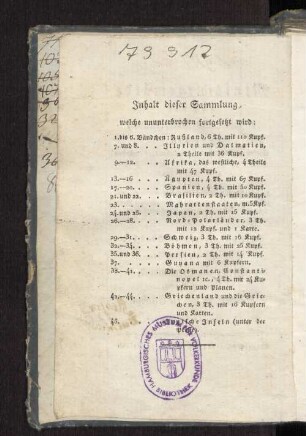 79 917
Inhalt dieser Sammlung,
welche ununterbrochen fortgesetzt wird:
1. bis 6. Bändchen: Rußland, 6 Th. mit 110 Kupf.
7. und 8. . . Illyrien und Dalmatien,
2 Theile mit 36 Kupf.
9.—12. . . Afrika, das westliche, 4 Theile
mit 47 Kupf.
13.—16. . . Ägypten, 4 Th. mit 67 Kupf.
17.—20. . . Spanien, 4 Th. mit 50 Kupf.
21. und 22. . . Brasilien, 2 Th. mit 10 Kupf.
23. . . . Mahrattenstaaten, m. 5 Kpf.
24. und 25. . . Japan, 2 Th. mit 16 Kupf.
26.—28. . . Nord-Polarländer, 3 Th.
mit 12 Kupf. und 1 Karte.
29.—31. . . Schweiz, 3 Th. mit 16 Kupf.
32.—34. . . Böhmen, 3 Th. mit 16 Kupf.
35. und 36. . . Persien, 2 Th. mit Kupf.
37. . . . Guyana mit 6 Kupfern.
38.—41. . . Die Osmanen, Constanti-
nopel ꝛc., 4 Th. mit 24 Ku-
pfern und Planen.
42.—44. . . Griechenland und die Grie-
chen, 3 Th. mit 16 Kupfern
und Karten.
Inseln (unter der
HAMBURGISCHES MUSEUM FÜR VÖLKERKUNDE
BIBLIOTHEK